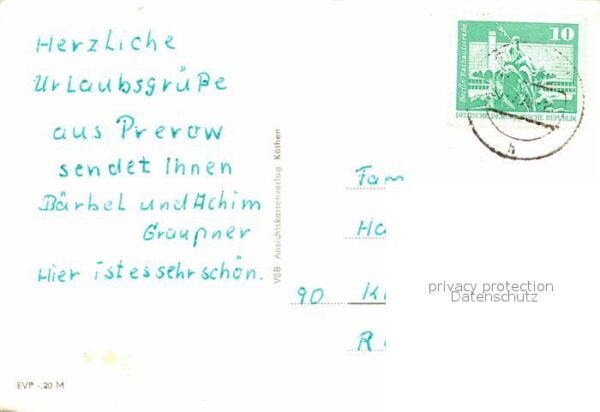 Herzliche
Urlaubsgrüße
aus Prerow
sendet Ihnen
Bärbel und Achim
Graupner
Hier ist es sehr schön.
VEB Ansichtskartenverlag Köthen
EVP -,20 M
10
Berlin-Rathausstraße
DEUTSCHE DEMOKRATISCHE REPUBLIK
Fam
Ha
90 K
R
privacy protection
Datenschutz